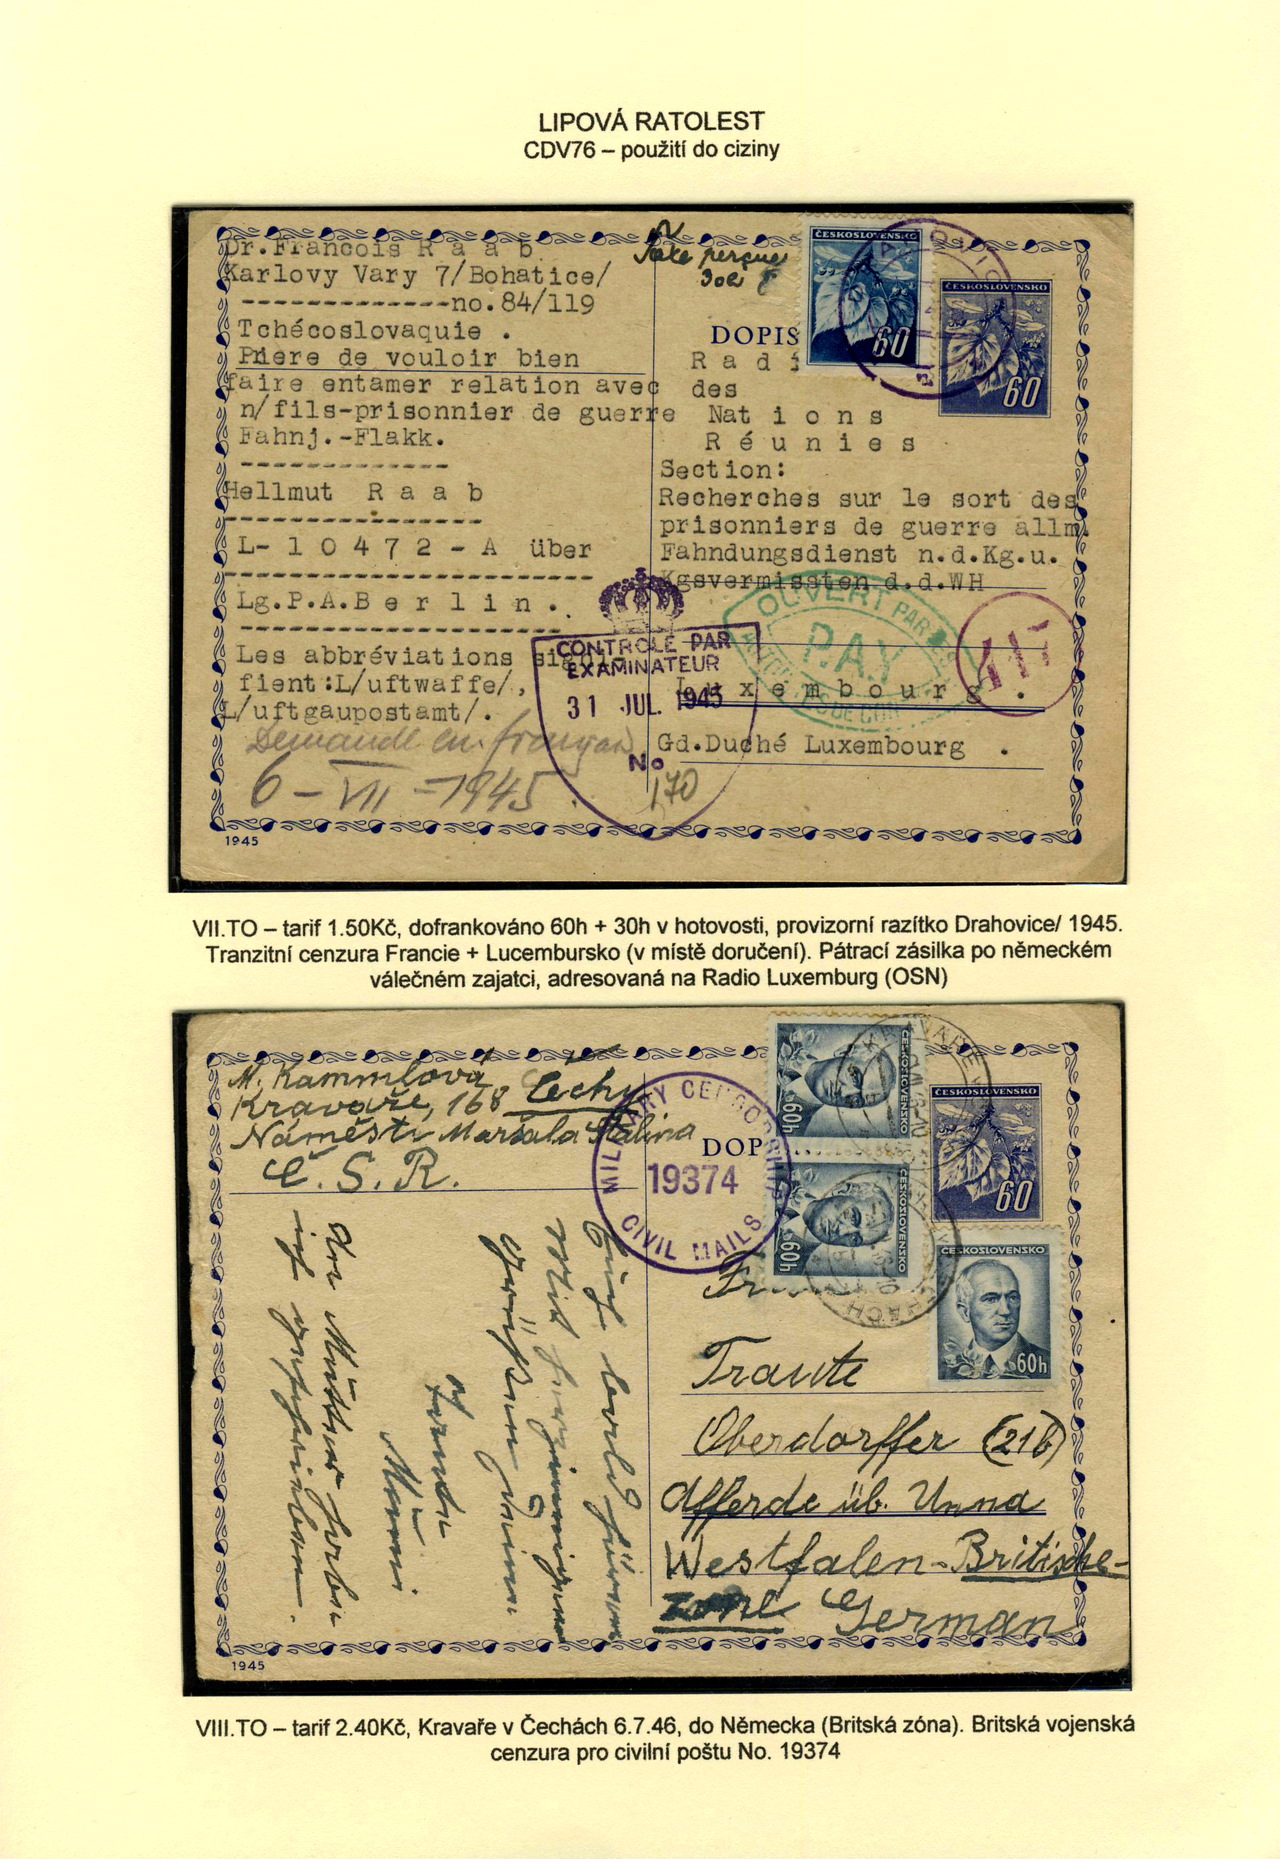 LIPOVÁ RATOLEST
CDV76 – použití do ciziny
Dr.Francois R a a b
Karlovy Vary 7/Bohatice/
-------------no.84/119
Tchécoslovaquie .
Priere de vouloir bien
faire entamer relation avec
n/fils-prisonnier de guerre
Fahnj.-Flakk.
Hellmut R a a b
L- 1 0 4 7 2 - A über
Lg.P.A.B e r l i n .
Les abbréviations signi-
fient:L/uftwaffe/,
L/uftgaupostamt/.
Demande en français
6 - VII - 1945
1945
Taxe perçue
30h
ČESKOSLOVENSKO
60
ČESKOSLOVENSKO
60
DOPIS
R a d i
des
Nat i o n s
R é u n i e s
Section:
Recherches sur le sort des
prisonniers de guerre allm.
Fahndungsdienst n.d.Kg.u.
Kgsvermissten d.d.WH
L u x e m b o u r g .
Gd.Duché Luxembourg .
CONTROLE PAR
EXAMINATEUR
31 JUL. 1945
No
170
OUVERT PAR
P.A.X
417
VII.TO – tarif 1.50Kč, dofrankováno 60h + 30h v hotovosti, provizorní razítko Drahovice/ 1945.
Tranzitní cenzura Francie + Lucembursko (v místě doručení). Pátrací zásilka po německém
válečném zajatci, adresovaná na Radio Luxemburg (OSN)
M. Kammlová
Kravaře, 168 Čechy
Náměstí Maršala Stalina
Č. S. R.
MILITARY CENSORSHIP
19374
CIVIL MAILS
DOP
ČESKOSLOVENSKO
60h
ČESKOSLOVENSKO
60h
ČESKOSLOVENSKO
60
ČESKOSLOVENSKO
60h
Traute
Oberdorffer (21b)
Afferde üb. Unna
Westfalen-Britische-
Zone German
1945
VIII.TO – tarif 2.40Kč, Kravaře v Čechách 6.7.46, do Německa (Britská zóna). Britská vojenská
cenzura pro civilní poštu No. 19374